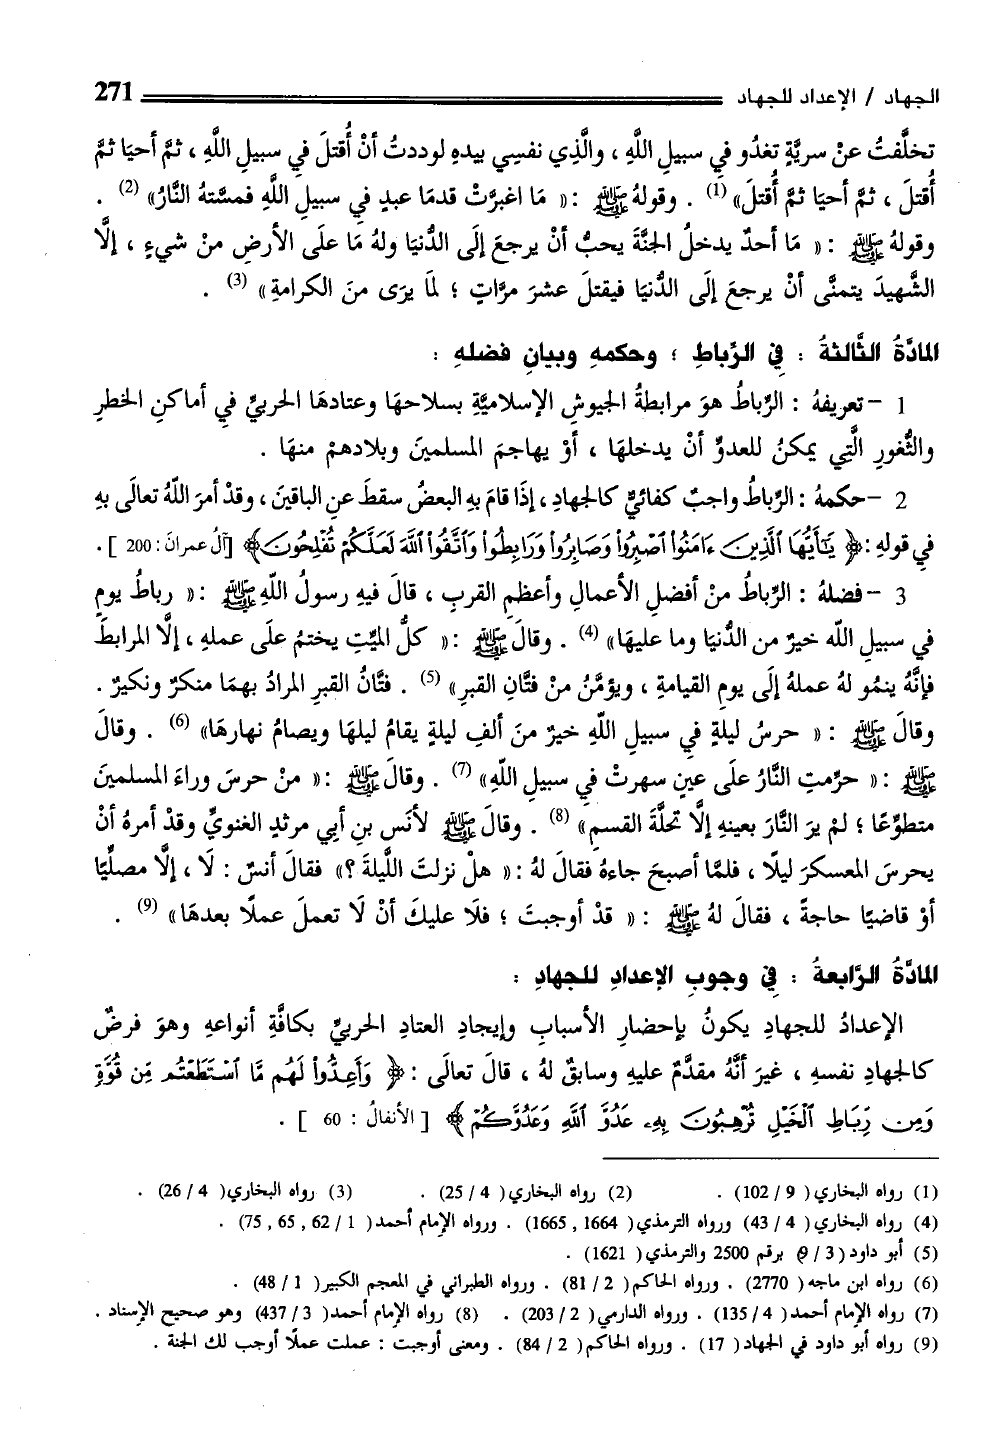 الجهاد / الإعداد للجهاد 271
تخلَّفتُ عنْ سريَّةٍ تغدُو في سبيلِ اللَّهِ ، والَّذي نفسِي بيدهِ لوددتُ أنْ أُقتلَ في سبيلِ اللَّهِ ، ثمَّ أحيَا ثمَّ
أُقتلَ ، ثمَّ أحيَا ثمَّ أُقتلَ» (1) . وقولهُ ﷺ : « مَا اغبرَّتْ قدمَا عبدٍ في سبيلِ اللَّهِ فمسَّتهُ النَّارُ» (2) .
وقولهُ ﷺ : « مَا أحدٌ يدخلُ الجنَّةَ يحبُّ أنْ يرجعَ إلَى الدُّنيَا ولهُ مَا علَى الأرضِ منْ شيءٍ ، إلَّا
الشَّهيدَ يتمنَّى أنْ يرجعَ إلَى الدُّنيَا فيقتلَ عشرَ مرَّاتٍ ؛ لمَا يرَى منَ الكرامةِ» (3) .
المادَّةُ الثَّالثةُ : في الرِّباطِ ؛ وحكمهِ وبيانِ فضلهِ :
1 - تعريفهُ : الرِّباطُ هوَ مرابطةُ الجيوشِ الإسلاميَّةِ بسلاحهَا وعتادهَا الحربيِّ في أماكنِ الخطرِ
والثُّغورِ الَّتِي يمكنُ للعدوِّ أنْ يدخلهَا ، أوْ يهاجمَ المسلمينَ وبلادهمْ منهَا .
2 - حكمهُ : الرِّباطُ واجبٌ كفائيٌّ كالجهادِ ، إذَا قامَ بهِ البعضُ سقطَ عنِ الباقينَ ، وقدْ أمرَ اللَّهُ تعالَى بهِ
في قولهِ : ﴿ يَٰٓأَيُّهَا ٱلَّذِينَ ءَامَنُوا۟ ٱصْبِرُوا۟ وَصَابِرُوا۟ وَرَابِطُوا۟ وَٱتَّقُوا۟ ٱللَّهَ لَعَلَّكُمْ تُفْلِحُونَ ﴾ [آلُ عمرانَ : 200 ] .
3 - فضلهُ : الرِّباطُ منْ أفضلِ الأعمالِ وأعظمِ القربِ ، قالَ فيهِ رسولُ اللَّهِ ﷺ : « رباطُ يومٍ
في سبيلِ اللَّه خيرٌ من الدُّنيَا وما عليهَا» (4) . وقالَ ﷺ : « كلُّ الميِّتِ يختمُ علَى عملهِ ، إلَّا المرابطَ
فإنَّهُ ينمُو لهُ عملهُ إلَى يومِ القيامةِ ، ويؤمَّنُ منْ فتَّانِ القبرِ» (5) . فتَّانُ القبرِ المرادُ بهمَا منكرٌ ونكيرٌ .
وقالَ ﷺ : « حرسُ ليلةٍ في سبيلِ اللَّهِ خيرٌ منَ ألفِ ليلةٍ يقامُ ليلهَا ويصامُ نهارهَا» (6) . وقالَ
ﷺ : « حرِّمتِ النَّارُ علَى عينٍ سهرتْ في سبيلِ اللَّهِ» (7) . وقالَ ﷺ : « منْ حرسَ وراءَ المسلمينَ
متطوِّعًا ؛ لمْ يرَ النَّارَ بعينهِ إلَّا تحلَّةَ القسمِ» (8) . وقالَ ﷺ لأنَس بنِ أبي مرثدٍ الغنويِّ وقدْ أمرهُ أنْ
يحرسَ المعسكرَ ليلًا ، فلمَّا أصبحَ جاءهُ فقالَ لهُ : « هلْ نزلتَ اللَّيلةَ ؟» فقالَ أنسٌ : لَا ، إلَّا مصلِّيًا
أوْ قاضيًا حاجةً ، فقالَ لهُ ﷺ : « قدْ أوجبتَ ؛ فلَا عليكَ أنْ لَا تعملَ عملًا بعدهَا» (9) .
المادَّةُ الرَّابعةُ : في وجوبِ الإعدادِ للجهادِ :
الإعدادُ للجهادِ يكونُ بإحضارِ الأسبابِ وإيجادِ العتادِ الحربيِّ بكافَّةِ أنواعهِ وهوَ فرضٌ
كالجهادِ نفسهِ ، غيرَ أنَّهُ مقدَّمٌ عليهِ وسابقٌ لهُ ، قالَ تعالَى : ﴿ وَأَعِدُّوا۟ لَهُم مَّا ٱسْتَطَعْتُم مِّن قُوَّةٍ
وَمِن رِّبَاطِ ٱلْخَيْلِ تُرْهِبُونَ بِهِۦ عَدُوَّ ٱللَّهِ وَعَدُوَّكُمْ ﴾ [ الأنفالُ : 60 ] .
(1) رواه البخاري ( 9 / 102) . (2) رواه البخاري ( 4 / 25) . (3) رواه البخاري ( 4 / 26) .
(4) رواه البخاري ( 4 / 43) ورواه الترمذي ( 1664 , 1665) . ورواه الإمام أحمد ( 1 / 62 , 65 , 75) .
(5) أبو داود ( 3 / 9) برقم 2500 والترمذي ( 1621) .
(6) رواه ابن ماجه ( 2770) . ورواه الحاكم ( 2 / 81) . ورواه الطبراني في المعجم الكبير ( 1 / 48) .
(7) رواه الإمام أحمد ( 4 / 135) . ورواه الدارمي ( 2 / 203) . (8) رواه الإمام أحمد ( 3 / 437) وهو صحيح الإسناد .
(9) رواه أبو داود في الجهاد ( 17) . ورواه الحاكم ( 2 / 84) . ومعنى أوجبت : عملت عملًا أوجب لك الجنة .